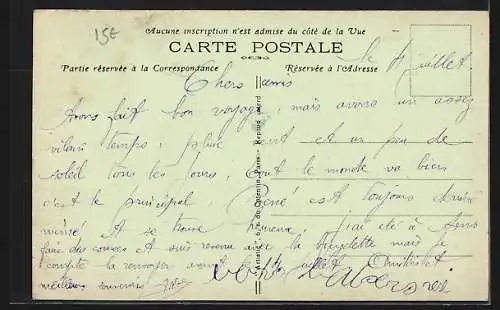 15E
Aucune inscription n'est admise du côté de la Vue
CARTE POSTALE
Partie réservée à la Correspondance
Réservée à l'Adresse
le 4 juillet
Chers amis
Avons fait bon voyage, mais avons un assez
vilain temps, pluie vent et un peu de
soleil tous les jours, tout le monde va bien
c'est le principal, René est toujours
et se trouve heureux, j'ai été à
faire des courses et suis revenu avec la bicyclette mais je
compte la renvoyer avant le juillet Amitiés et
meilleurs souvenirs